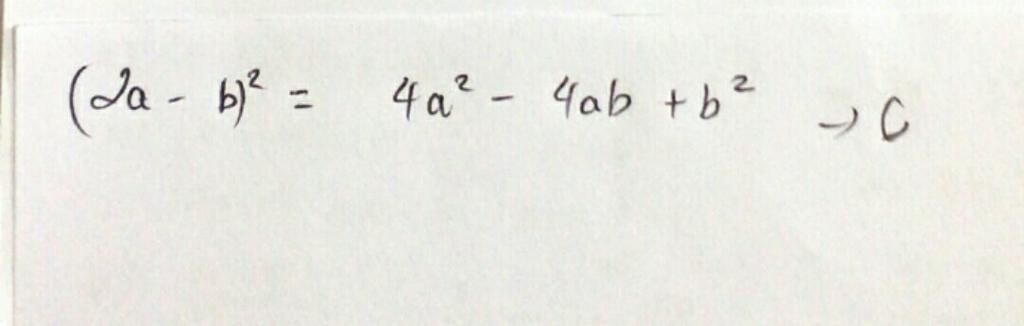 (2a - b)² = 4a² - 4ab + b² → C